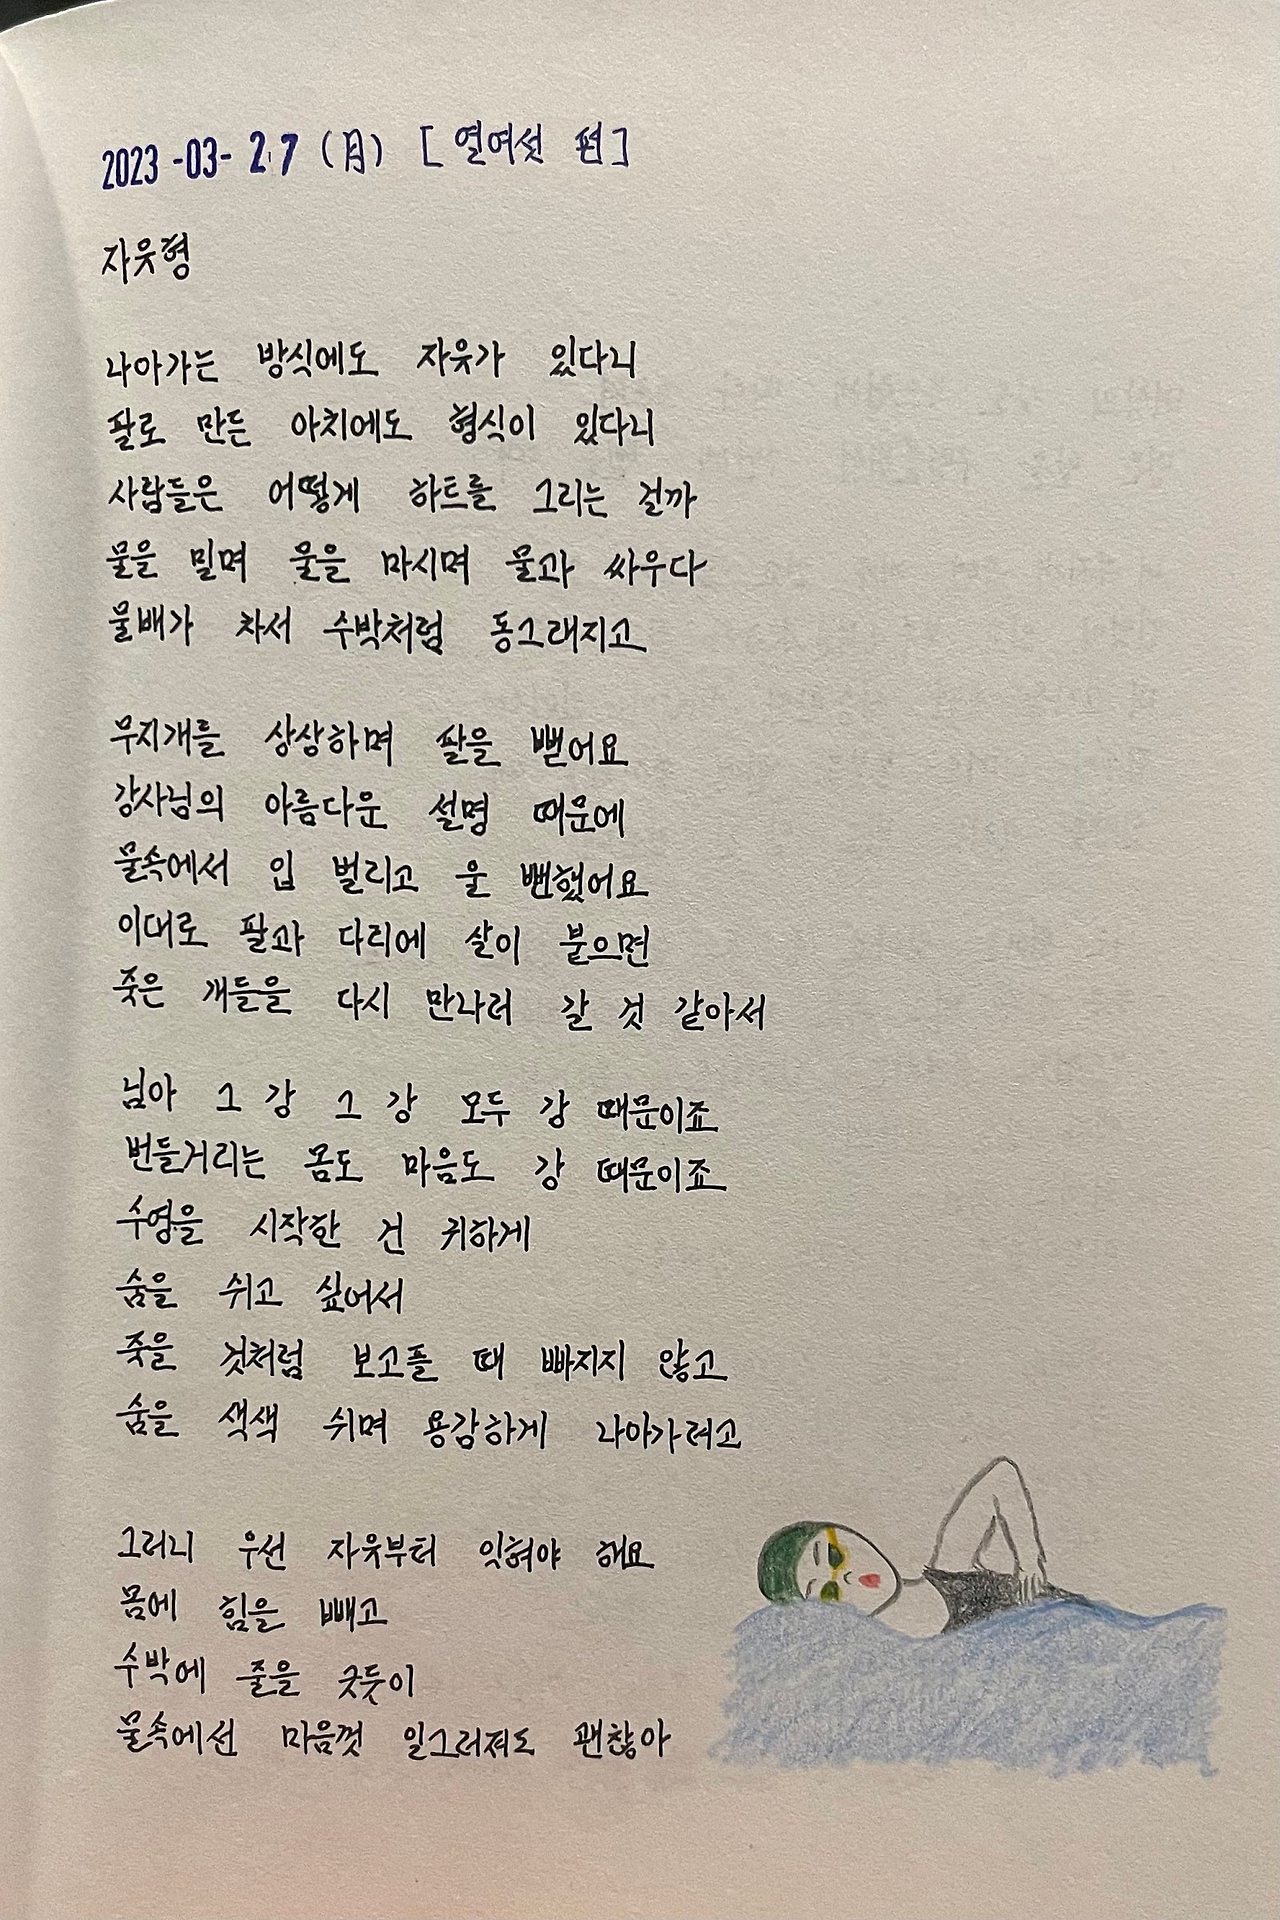 2023-03-27 (月) [열여섯 편]
자유형
나아가는 방식에도 자유가 있다니
팔로 만든 아치에도 형식이 있다니
사람들은 어떻게 하트를 그리는 걸까
물을 밀며 물을 마시며 물과 싸우다
물배가 차서 수박처럼 동그래지고
무지개를 상상하며 팔을 뻗어요
강사님의 아름다운 설명 때문에
물속에서 입 벌리고 울 뻔했어요
이대로 팔과 다리에 살이 붙으면
죽은 개들을 다시 만나러 갈 것 같아서
님아 그 강 그 강 모두 강 때문이죠
번들거리는 몸도 마음도 강 때문이죠
수영을 시작한 건 귀하게
숨을 쉬고 싶어서
죽을 것처럼 보고플 때 빠지지 않고
숨을 색색 쉬며 용감하게 나아가려고
그러니 우선 자유부터 익혀야 해요
몸에 힘을 빼고
수박에 줄을 긋듯이
물속에선 마음껏 일그러져도 괜찮아